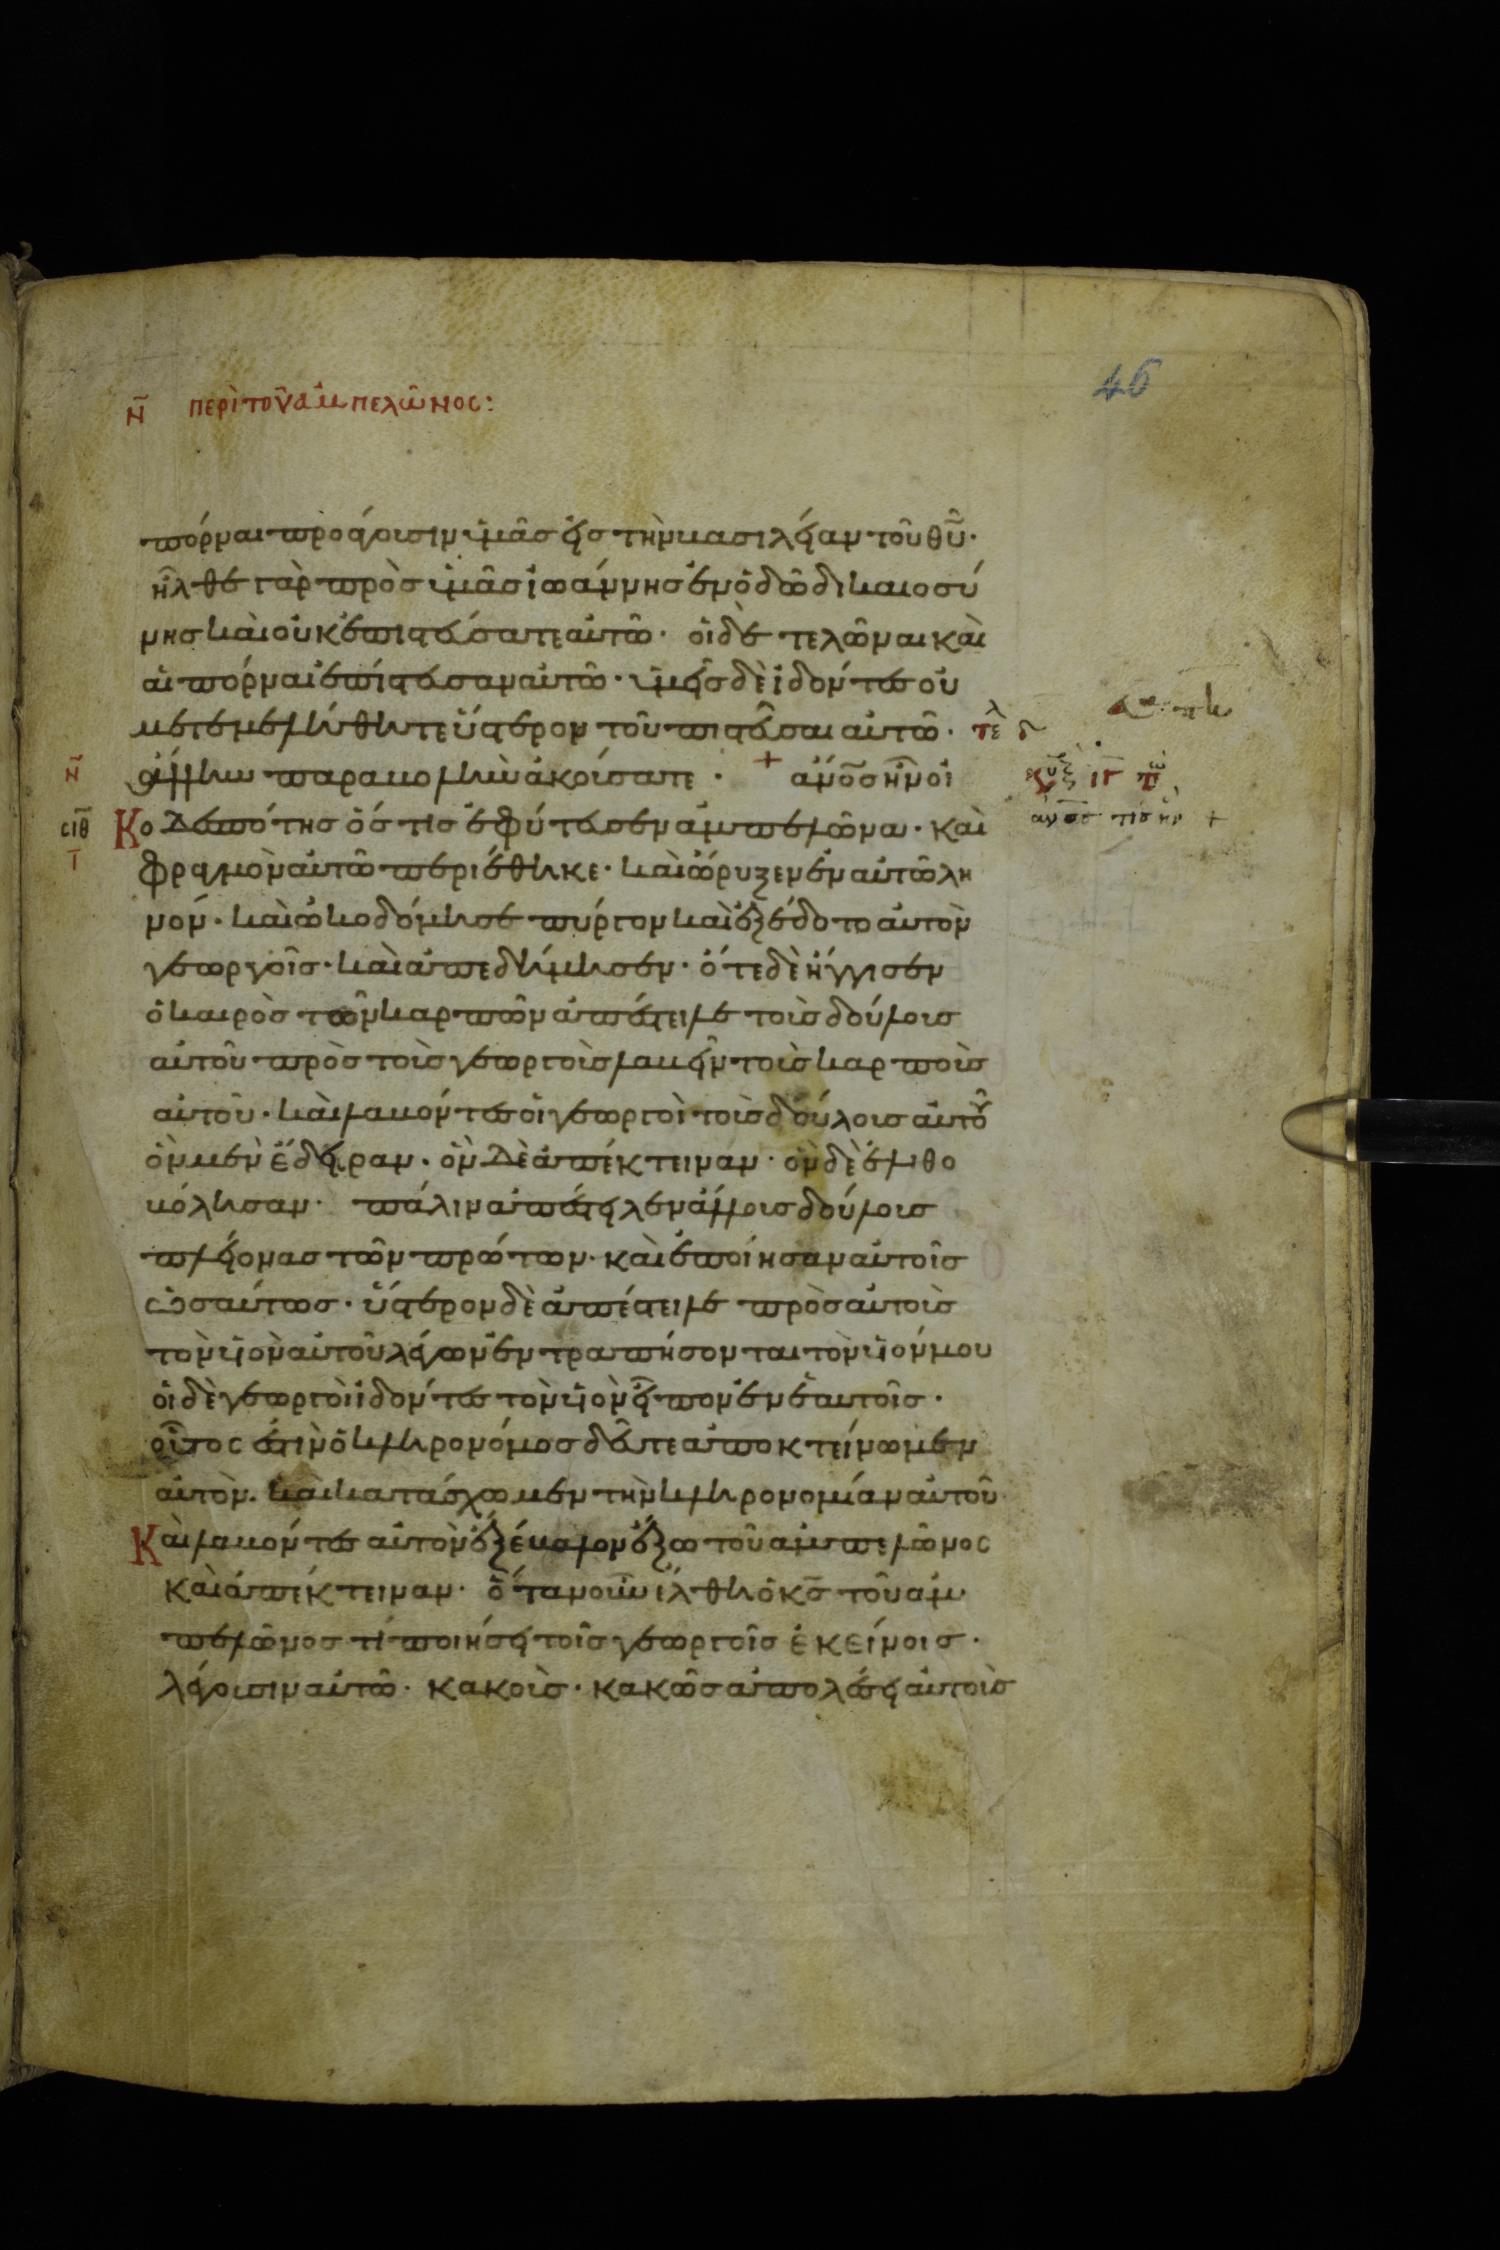 46
ν̄ περὶ τοῦ ἀμπελῶνος:
πόρναι προάγουσιν ὑμᾶς εἰς τὴν βασιλείαν τοῦ θῦ·
ἦλθε γὰρ πρὸς ὑμᾶς ἰωάννης ἐν ὁδῶ δικαιοσύ
νης καὶ οὐκ ἐπιστεύσατε αὐτῶ· οἱ δὲ τελῶναι καὶ
αἱ πόρναι ἐπίστευσαν αὐτῶ· ὑμεῖς δὲ ἰδόντες οὐ
μετεμελήθητε ὕστερον τοῦ πιστεῦσαι αὐτῶ· τὲλ
ν̄ ἄλλην παραβολὴν ἀκούσατε· + ἀνο̄ς ἦν οἰ
σιθ κο Δεσπότης ὅστις ἐφύτευσεν ἀμπελῶνα· καὶ
ῑ φραγμὸν αὐτῶ περιέθηκε· καὶ ὤρυξεν ἐν αὐτῶ λη
νόν· καὶ ὠκοδόμησε πύργον καὶ ἐξέδοτο αὐτὸν
γεωργοῖς· καὶ ἀπεδήμησεν· ὅτε δὲ ἤγγισεν
ὁ καιρὸς τῶν καρπῶν ἀπέστειλε τοὺς δούλους
αὐτοῦ πρὸς τοὺς γεωργοὺς λαβεῖν τοὺς καρποὺς
αὐτοῦ· καὶ λαβόντες οἱ γεωργοὶ τοὺς δούλους αὐτοῦ
ὃν μὲν ἔδειραν· ὃν Δὲ ἀπέκτειναν· ὃν δὲ ἐλιθο
βόλησαν· πάλιν ἀπέστειλεν ἄλλους δούλους
πλείονας τῶν πρώτων· καὶ ἐποίησαν αὐτοῖς
ὡσαύτως· ὕστερον δὲ ἀπέστειλε πρὸς αὐτοὺς
τὸν υἱὸν αὐτοῦ λέγων ἐντραπήσονται τὸν υἱόν μου
οἱ δὲ γεωργοὶ ἰδόντες τὸν υἱὸν εἶπον ἐν ἑαυτοῖς·
οὗτος ἐστιν ὁ κληρονόμος δεῦτε ἀποκτείνωμεν
αὐτὸν. καὶ κατάσχωμεν τὴν κληρονομίαν αὐτοῦ·
Καὶ λαβόντες αὐτὸν ἐξέβαλον ἔξω τοῦ ἀμπελῶνος
καὶ ἀπέκτειναν· ὅταν οὖν ἔλθη ὁ κς̄ τοῦ ἀμ
πελῶνος τί ποιήσει τοῖς γεωργοῖς ἐκείνοις·
λέγουσιν αὐτῶ· κακοὺς· κακῶς ἀπολέσει αὐτοὺς